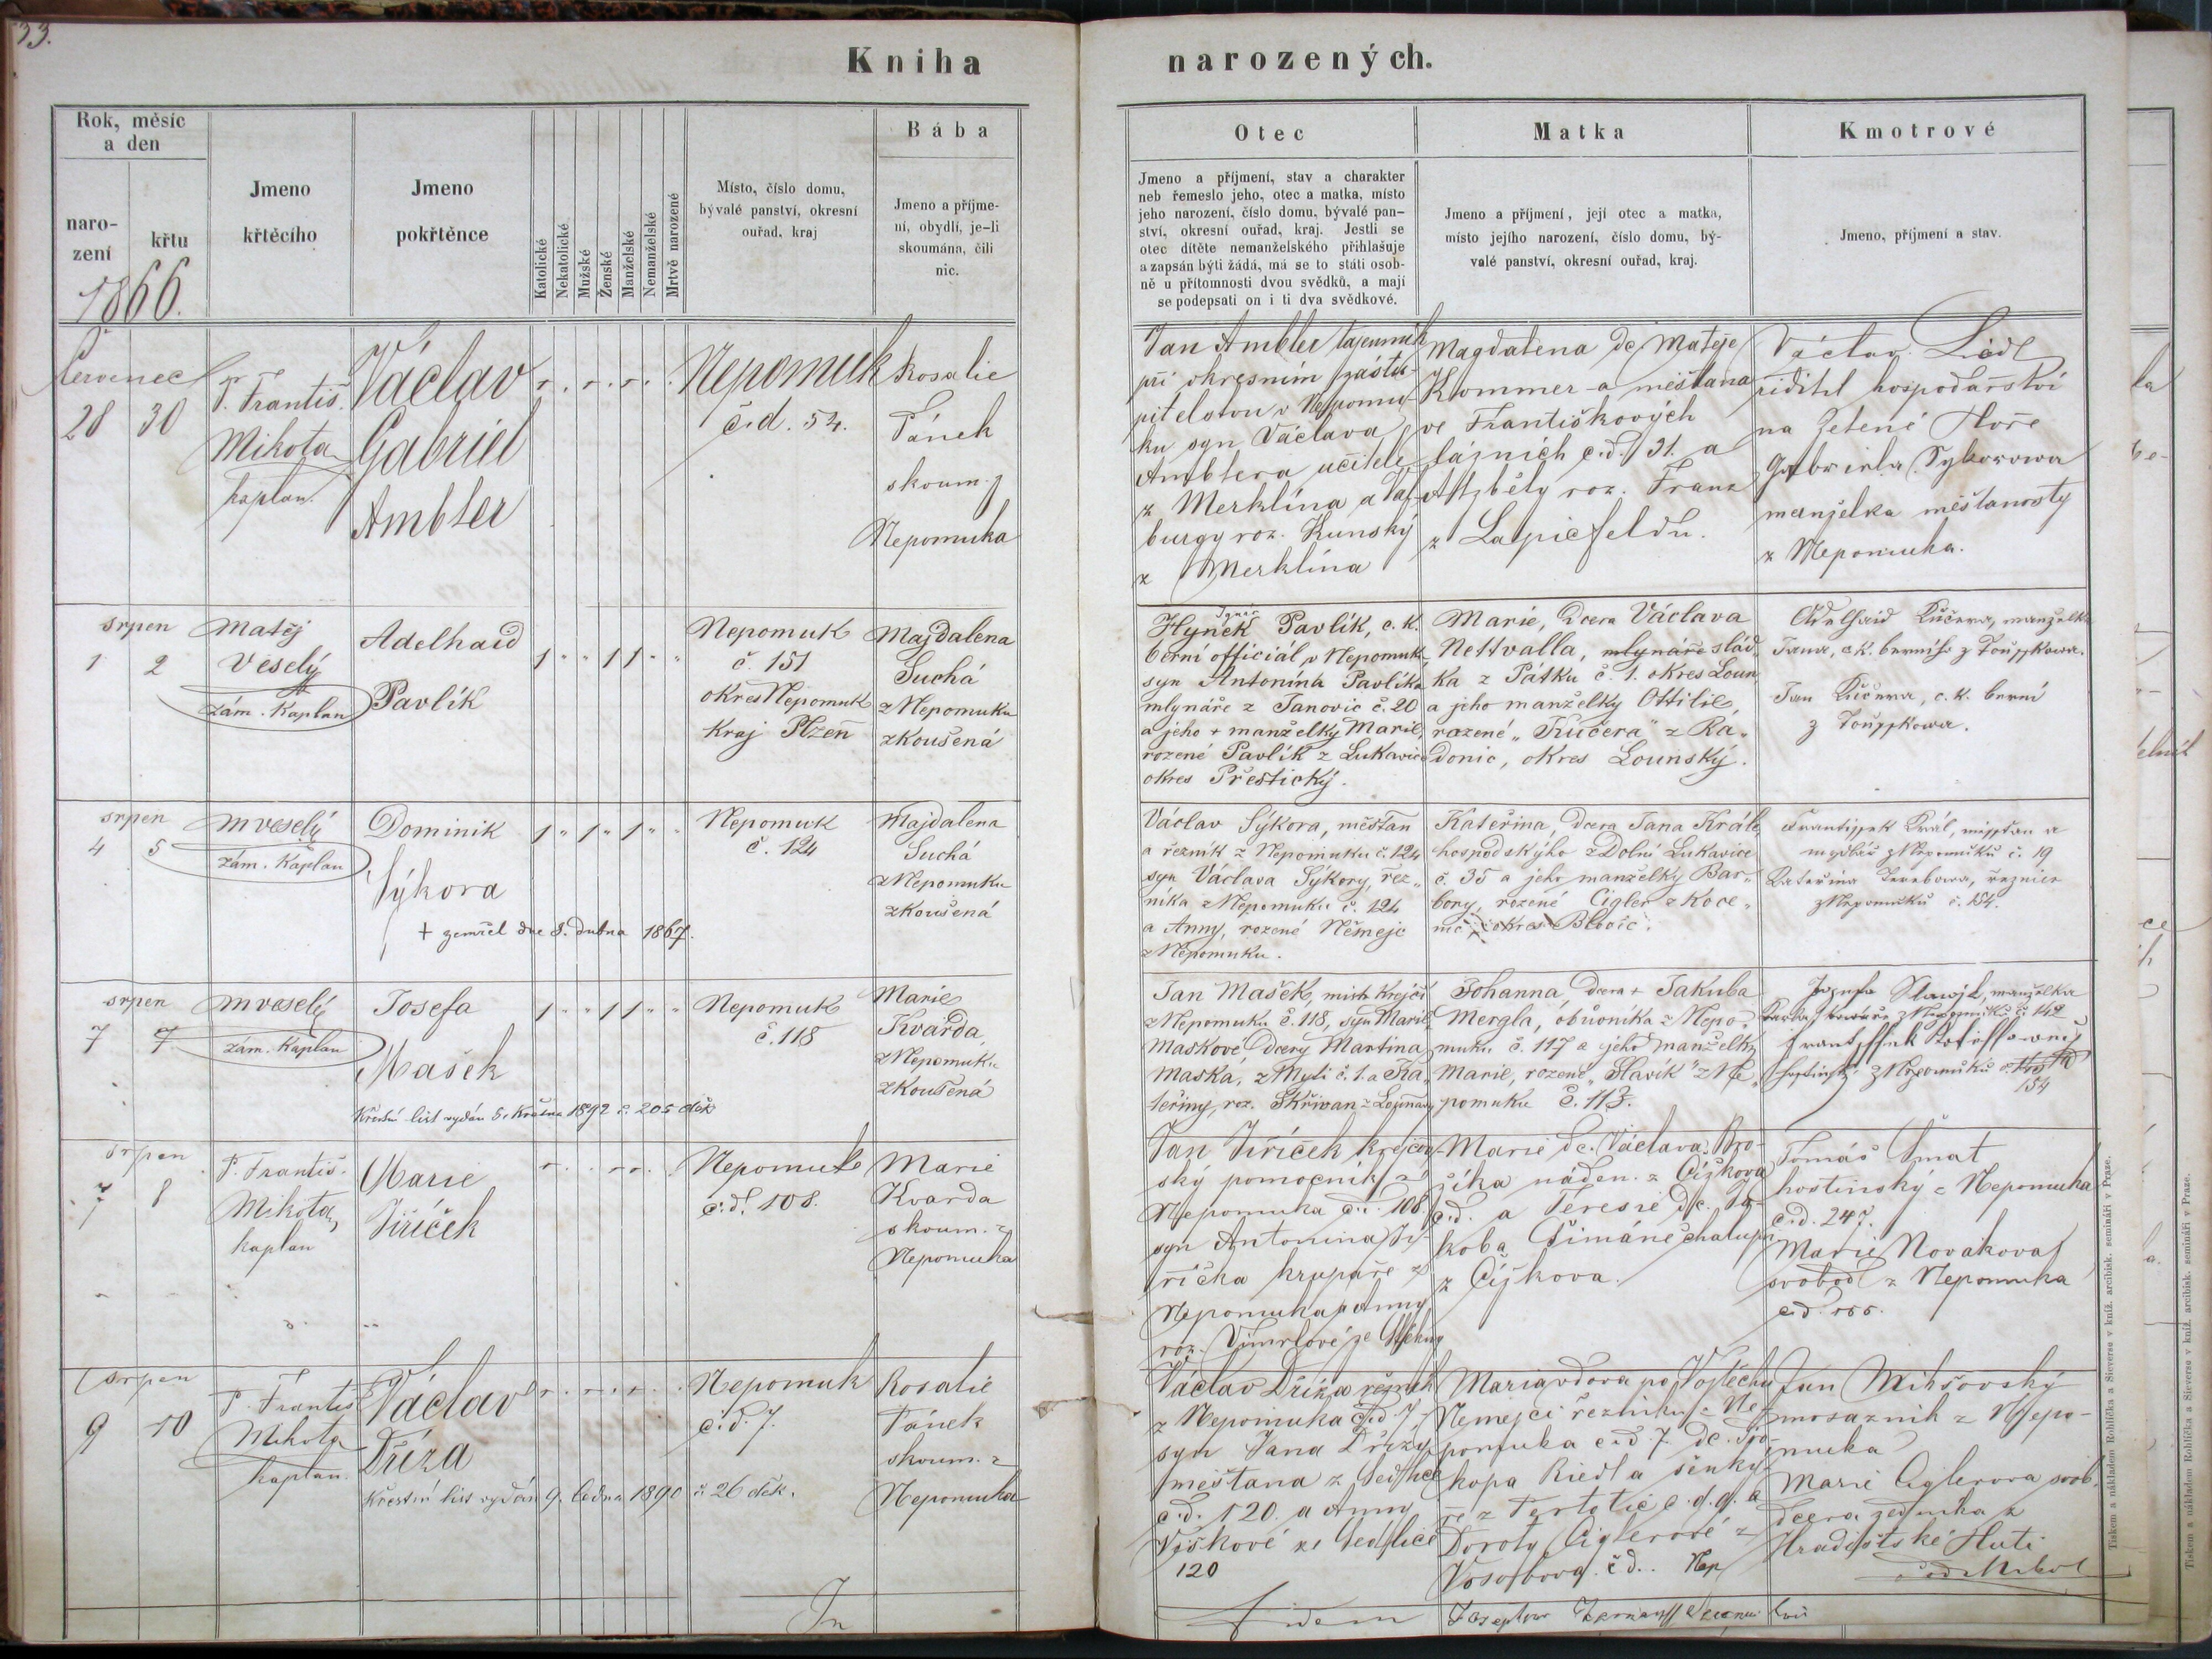 33.
Kniha narozených.
Rok, měsíc
a den
naro-
zení
křtu
1866.
Jmeno
křtěcího
Jmeno
pokřtěnce
Katolické
Nekatolické
Mužské
Ženské
Manželské
Nemanželské
Mrtvě narozené
Místo, číslo domu,
bývalé panství, okresní
ouřad, kraj
Bába
Jmeno a příjme-
ní, obydlí, je-li
skoumána, čili
nic.
Otec
Jmeno a příjmení, stav a charakter
neb řemeslo jeho, otec a matka, místo
jeho narození, číslo domu, bývalé pan-
ství, okresní ouřad, kraj. Jestli se
otec dítěte nemanželského přihlašuje
a zapsán býti žádá, má se to státi osob-
ně u přítomnosti dvou svědků, a mají
se podepsati on i ti dva svědkové.
Matka
Jmeno a příjmení, její otec a matka,
místo jejího narození, číslo domu, bý-
valé panství, okresní ouřad, kraj.
Kmotrové
Jmeno, příjmení a stav.
Červenec
28 30
P. Františ.
Mikota
kaplan.
Václav
Gabriel
Ambler
Nepomuk
č.d. 54.
Rosalie
Pánek
skoum. z
Nepomuka
Jan Ambler tajemník
při okresním zástu-
pitelstvu v Nepomu-
ku syn Václava
Amblera učitele
z Merklína a Val-
burgy roz. Kunský
z Merklína
Magdalena dc. Matěje
Krommer-a měšťana
ve Františkových
lázních č.d. 131. a
Alžběty roz. Franz
z
Václav Liedl
ředitel hospodařství
na Zelené Hoře
Gabriela Sykorowa
manželka měšťanosty
z Nepomuka.
srpen
1 2
Matěj
Veselý
zám. Kaplan
Adelhaid
Pavlík
1 " " 1 1 " "
Nepomuk
č. 151
okres Nepomuk
Kraj Plzeň
Majdalena
Suchá
z Nepomuku
zkoušená
Ignác
Hynek Pavlík, c. k.
berní officiál v Nepomuk-
syn Antonína Pavlíka
mlynáře z Janovic č. 20
a jeho + manželky Marie,
rozené Pavlík z Lukavice
okres Přeštický.
Marie, dcera Václava
Nettvalla, mlynáře slád-
ka z Pátku č. 1. okres Loun,
a jeho manželky Ottilie,
rozené "Kučera" z Ra-
donic, okres Lounský.
Adelhaid Kučera, manželka
Jana, c.k. berního z
Jan Kučera, c. k. berní
z
srpen
4 5
M Veselý
zám. Kaplan
Dominik
Sýkora
+ zemřel dne 8. dubna 1867.
1 " 1 " 1 " "
Nepomuk
č. 124
Majdalena
Suchá
z Nepomuku
zkoušená
Václav Sýkora, měšťan
a řezník z Nepomuku č. 124
syn Václava Sýkory, řez-
níka z Nepomuku č. 124
a Anny, rozené Němejc
z Nepomuku.
Kateřina, dcera Jana Krále
hospodskýho z Dolní Lukavice
č. 35 a jeho manželky Bar-
bory, rozené Cigler z Koce-
nic okres Blovic.
Král, a
z Nepomuku č. 19
Kateřina
z Nepomuku č. 154.
srpen
7 7
M Veselý
zám. Kaplan
Josefa
Mašek
Křestní list vydán 5. Května 1892 č. 205 děk
1 " " 1 1 " "
Nepomuk
č. 118
Marie
Kvarda,
z Nepomuku
zkoušená
Jan Mašek, mistr krejčí
z Nepomuku č. 118, syn Marie
Maškové dcery Martina
Maška, z Myti č. 1. a Ka-
teřiny, roz. Skřivan z
Johanna dcera + Jakuba
Mergla, obuvníka z Nepo-
muku č. 117 a jeho manželky
Marie, rozené "Slavík" z Ne-
pomuku č. 113.
Josefa Slawjk, manželka
z Nepomuku č. 142
z Nepomuku č.
154
srpen
7 8
P. Františ.
Mikota,
kaplan
Marie
Jiříček
Nepomuk
č.d. 108.
Marie
Kvarda
skoum. z
Nepomuka
Jan Jiříček krejčov-
ský pomocník z
Nepomuka č.d. 108.
syn Antonína Ji-
říčka krupaře z
Nepomuka a Anny
roz.
Marie dc. Václava Bro-
žíka náden. z Čížkova
č.d. a Teresie dc. Ja-
koba Šimáně chalup.
z Čížkova.
Tomáš Šmat
hostinský z Nepomuka
č.d. 247.
Marie Nováková
svobod. z Nepomuka
č.d.
srpen
9 10
P. Františ
Mikota
kaplan.
Václav
Dříza
Křestní list vydán 9. ledna 1890 č. 26 děk.
Nepomuk
č.d. 7.
Rosalie
Pánek
skoum. z
Nepomuka
Václav Dříza řezník
z Nepomuka č.d. 7.
syn Jana Dřízy
měšťana z Sedlice
č.d. 120. a Anny
Víškové ze Sedlice
120
Maria vdova po Vojtěchu
Němejci řezníku z Ne-
pomuka č.d. 7. dc. Pro-
kopa Riedl a šenký-
ře z č.d. 9. a
Doroty Ciglerové z
č.d. Nep
Jan
mosazník z Nepo-
muka
Marie Ciglerova svob.
dcera z
Hradišťské Huti
Tiskem a nákladem Rohlíčka a Sieverse v kníž. arcibisk. semináři v Praze.
Tiskem a nákladem Rohlíčka a Sieverse v kníž. arcibisk. semináři v Praze.